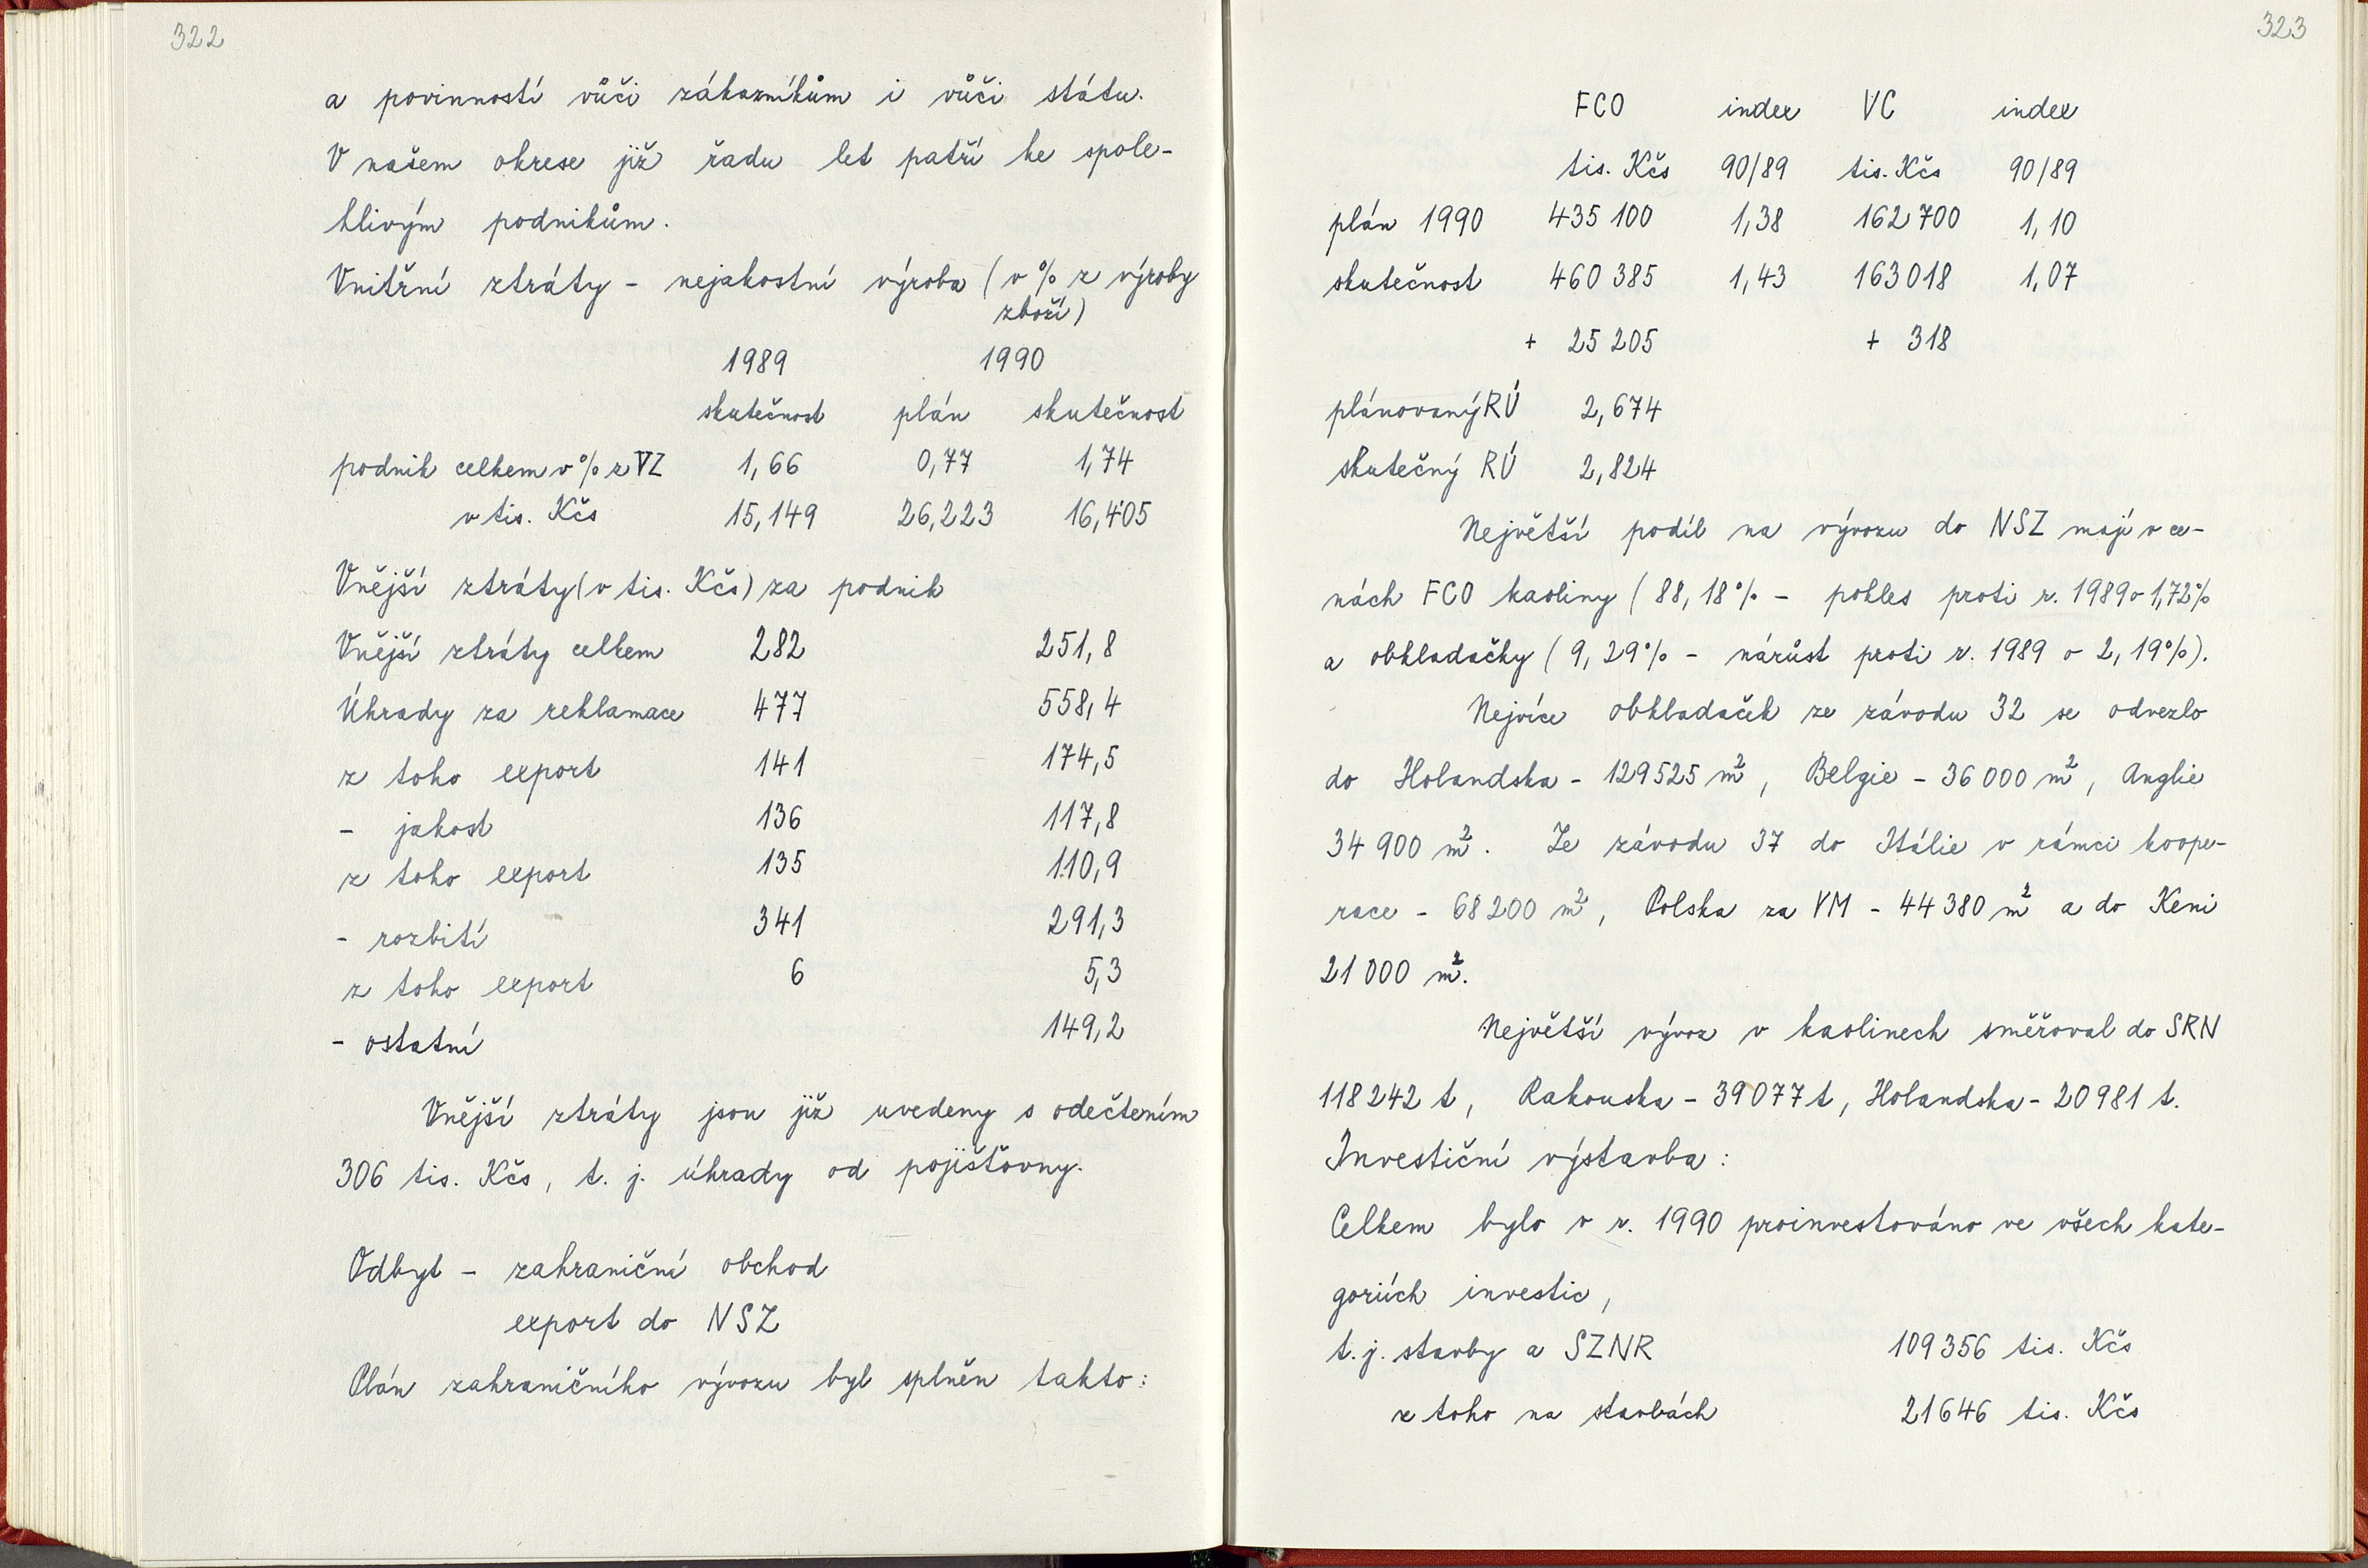 322
a povinností vůči zákazníkům i vůči státu.
V našem okrese již řadu let patří ke spole-
hlivým podnikům.
Vnitřní ztráty - nejakostní výroba (v % z výroby
zboží)
1989 1990
skutečnost plán skutečnost
podnik celkem v % z VZ 1,66 0,77 1,74
v tis. Kčs 15,149 26,223 16,405
Vnější ztráty (v tis. Kčs) za podnik
Vnější ztráty celkem 282 251,8
Úhrady za reklamace 477 558,4
z toho export 141 174,5
- jakost 136 117,8
z toho export 135 110,9
- rozbití 341 291,3
z toho export 6 5,3
- ostatní 149,2
Vnější ztráty jsou již uvedeny s odečtením
306 tis. Kčs, t. j. úhrady od pojišťovny.
Odbyt - zahraniční obchod
export do NSZ
Plán zahraničního vývozu byl splněn takto:
323
FCO index VC index
tis. Kčs 90/89 tis. Kčs 90/89
plán 1990 435 100 1,38 162 700 1,10
skutečnost 460 385 1,43 163 018 1,07
+ 25 205 + 318
plánovaný RÚ 2,674
skutečný RÚ 2,824
Největší podíl na vývozu do NSZ mají v ce-
nách FCO kaoliny (88,18% - pokles proti r. 1989 o 1,72%
a obkladačky (9,29% - nárůst proti r. 1989 o 2,19%).
Nejvíce obkladaček ze závodu 32 se odvezlo
do Holandska - 129525 m², Belgie - 36 000 m², Anglie
34 900 m². Ze závodu 37 do Itálie v rámci koope-
race - 68 200 m², Polska za VM - 44 380 m² a do Keni
21 000 m².
Největší vývoz v kaolinech směřoval do SRN
118 242 t, Rakouska - 39 077 t, Holandska - 20 981 t.
Investiční výstavba:
Celkem bylo v r. 1990 proinvestováno ve všech kate-
goriích investic,
t. j. stavby a SZNR 109 356 tis. Kčs
z toho na stavbách 21 646 tis. Kčs